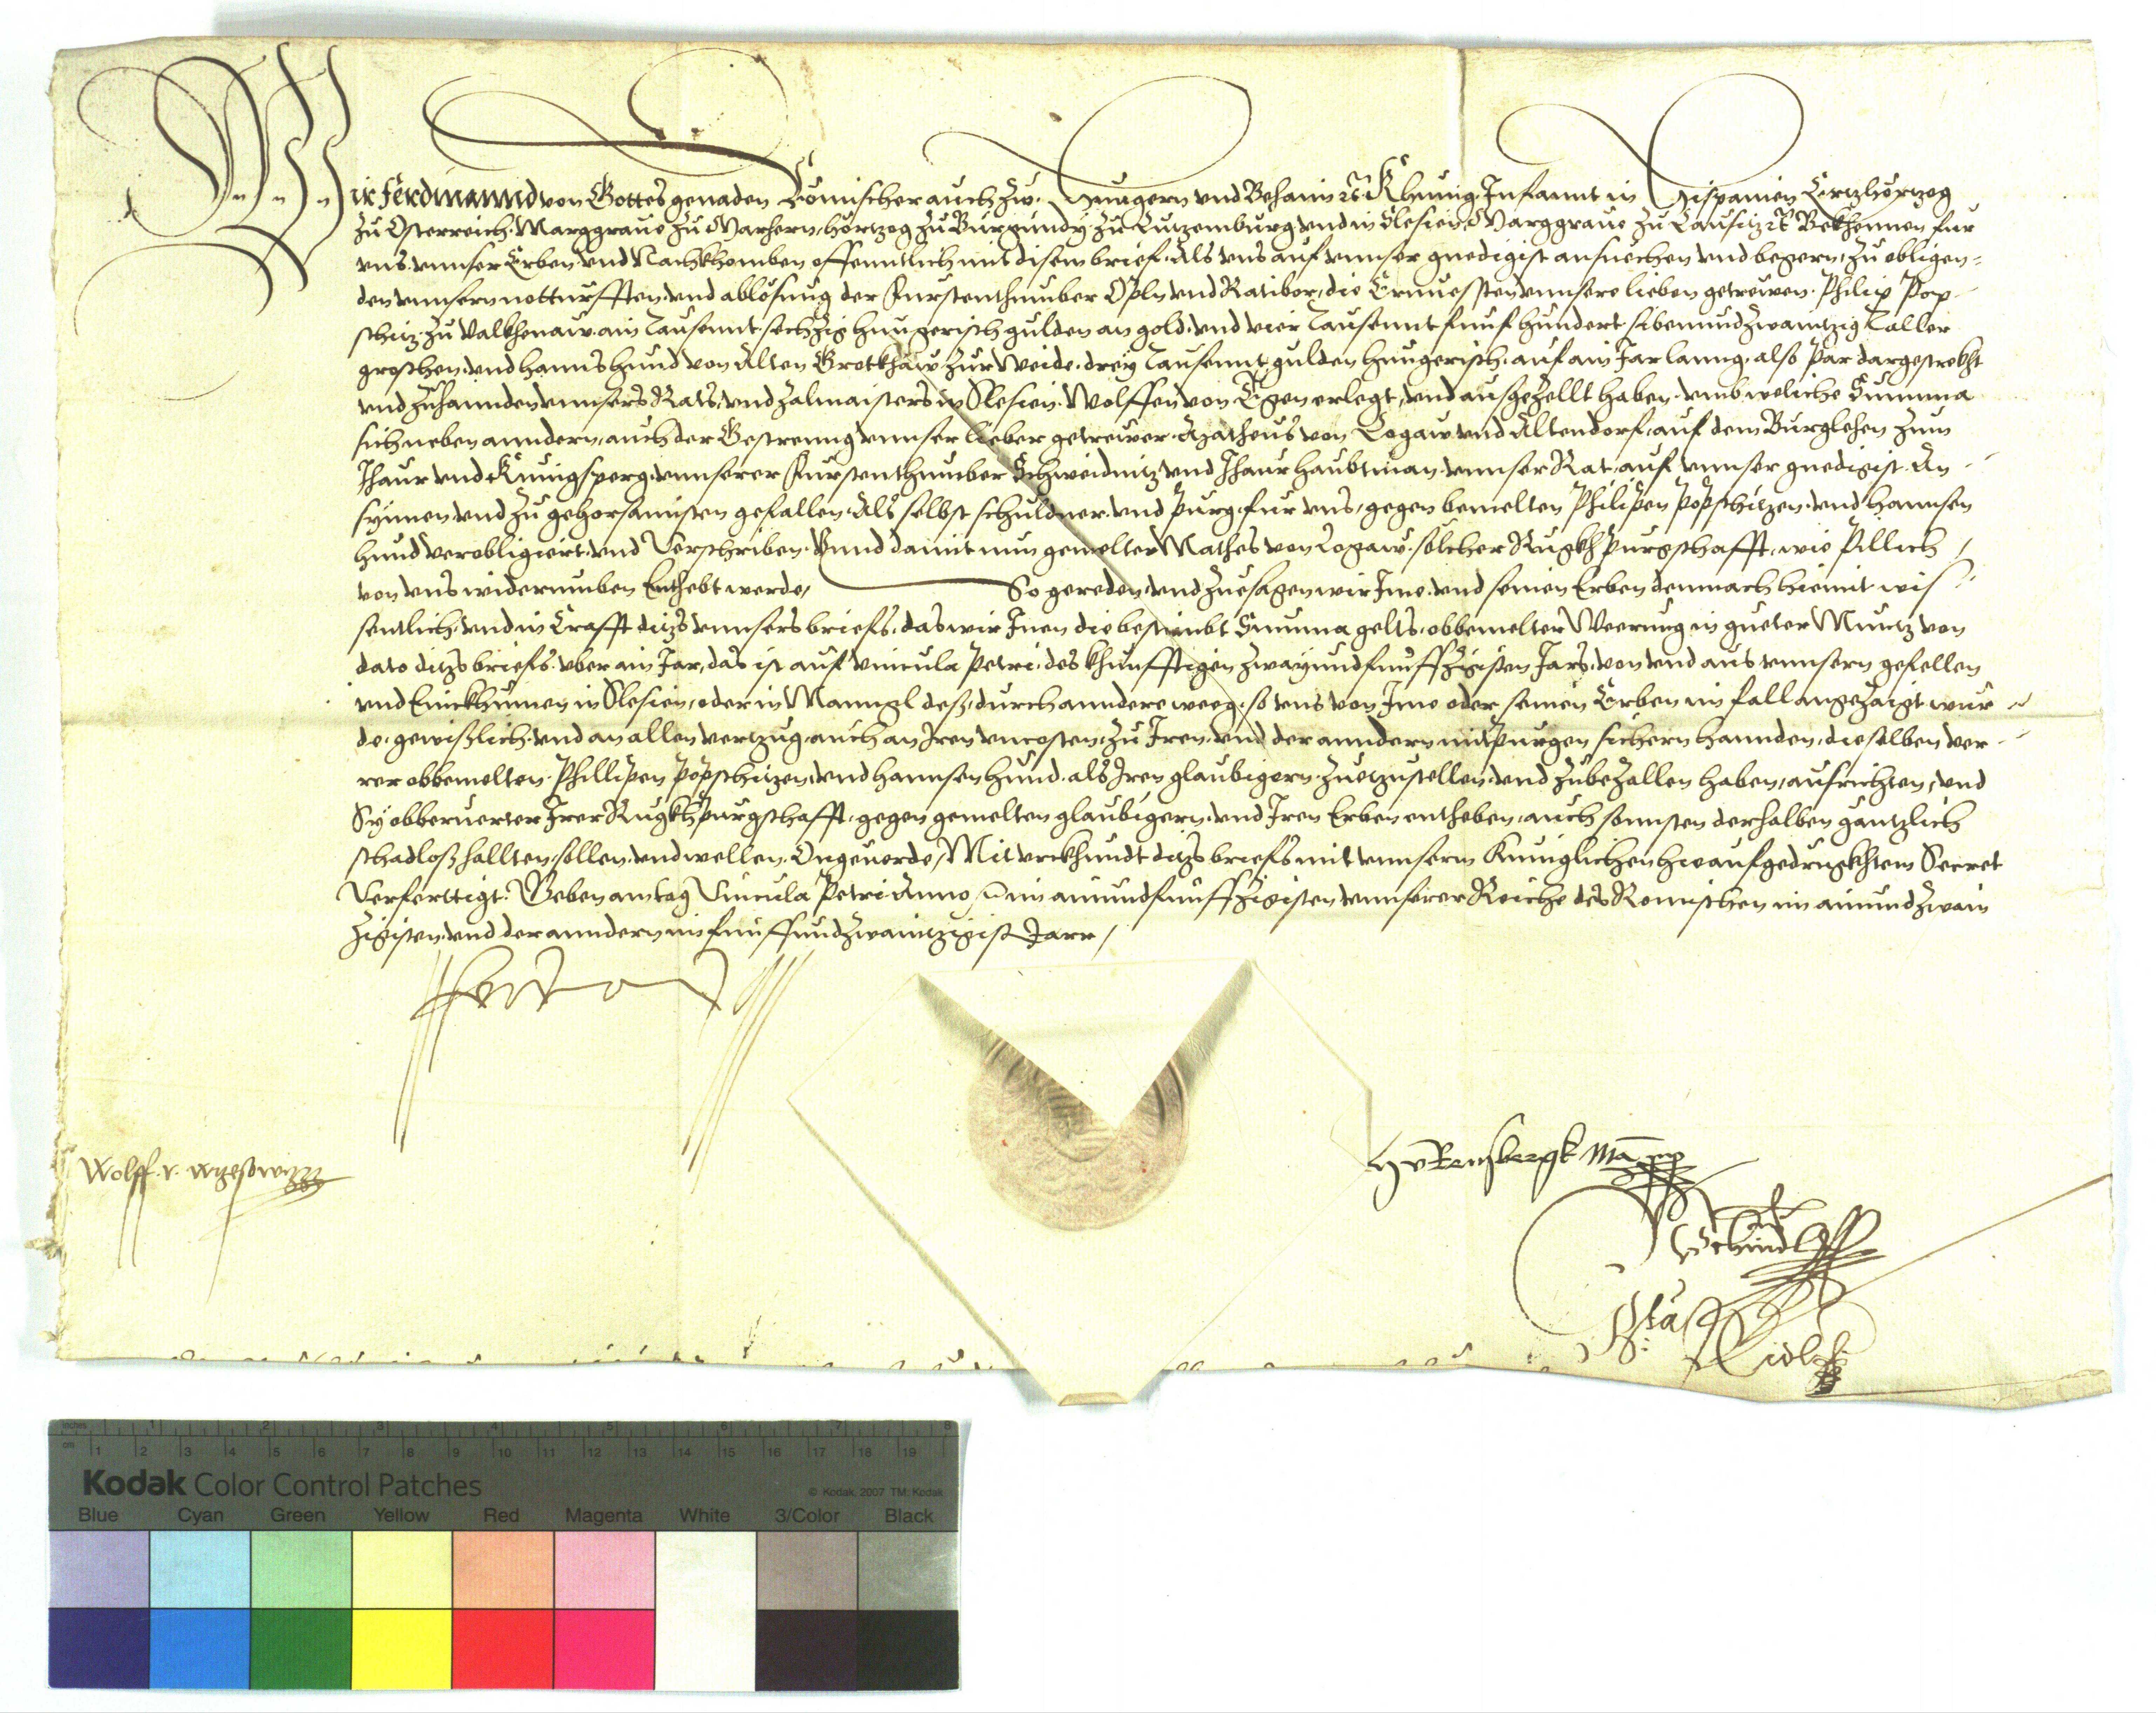 Wir Ferdinannd von Gottes genaden Römischer auch zw. Hungern vnd Behaim ꝛc. Khunig, Infannt in Hispanien Ertzhertzog
zu Osterreich. Marggraue zu Marhern, hertzog zu Burgundy zu Lutzemburg vnd in Slesien, Marggraue zu Lausitz ꝛc. Bekhennen fur
vns. vnnser Erben vnd Nachkhomben offenntlich mit disem brief, Als vns auf vnnser gnedigist ansuechen vnd begern, zu obligen-
den vnnsern notturfften, vnd ablosung der Furstenthumber Opln vnd Ratibor, die Ernuessten vnnsere lieben getrewen. Philip Pop-
schitz zu Valkhenaw. ain Tausennt sechzig hungerisch gulden an gold, vnd vier Tausennt funf hundert sibenundzwaintzig Taller
groschen, vnd hanns hund von Alten Grotkhaw zur Weide, drey Tausennt gulden hungerisch, auf ain Jar lanng, also par dargestrekht
vnd zuhannden vnnsers Rats, vnd zalmaisters in Slesien. Wolffen von Egen erlegt, vnd ausgezellt haben, vmb weliche Summa
sich neben anndern, auch der Gestrenng vnnser lieber getrewer. Matheus von Logaw vnd Altendorf, auf dem Burglehen zum
Jhaur vnd Kunigsperg, vnnserer Furstenthumber Schweidnitz vnd Jhaur haubtman. vnnser Rat, auf vnnser gnedigist An-
synnen, vnd zu gehorsamisten gefallen, Als selbst schuldner, vnd purg fur vns, gegen bemelten Philipen Popschitzen, vnd hannsen
hund verobligiert, vnd Verschriben. Vnnd damit nun gemelter Mathes von Logaw. solcher Rugkhpurgschafft, wie pillich /
von vns widerumben Enthebt werde, So gereden, vnd zuesagen wir Ime. vnd seinen Erben demnach hiemit wis-
sentlich, vnd in Crafft ditzs vnnsers briefs, das wir Inen die bestimbt Summa gelts, obbemelter Weerung in gueter Muntz von
dato ditzs briefs vber ain Jar, das ist auf vincula Petri, des khunfftigen zwayundfunffzigisten Jars, von vnd aus vnnsern gefellen
vnd Einkhumen in Slesien, oder in Manngl des, durch anndere weeg, so vns von Ime oder seinen Erben im fall angezaigt wur-
de, gewislich, vnd an allen vertzug, auch an Iren vncosten, zu Iren, vnd der anndern mitpurgen sichern hannden, dieselben ver-
rer obbemelten. Phillipen Popschitzen, vnd hannsen hund, als Iren glaubigern, zuetzustellen, vnd zubezallen haben, aufrichten, vnd
Sy obberuerter Irer Rugkhpurgschafft, gegen gemelten glaubigern, vnd Iren Erben entheben, auch sonnsten derhalben gäntzlich
schadloß hallten, sollen, vnd wellen. Ongeuerde, Mit vrkhundt ditzs briefs mit vnnserm Kuniglichen hieaufgedrugkhtem Secret
Verferttigt. Geben am tag Vincula Petri Anno ꝛc. im ainundfunffzigisten, vnnserer Reiche des Romischen im ainundzwain
zigisten, vnd der anndern im funffundzwaintzigist Jarr /
Ferdinand
Wolff. v.
Kodak Color Control Patches
© Kodak, 2007 TM: Kodak
inches 1 2 3 4 5 6 7 8
cm 1 2 3 4 5 6 7 8 9 10 11 12 13 14 15 16 17 18 19
Blue Cyan Green Yellow Red Magenta White 3/Color Black